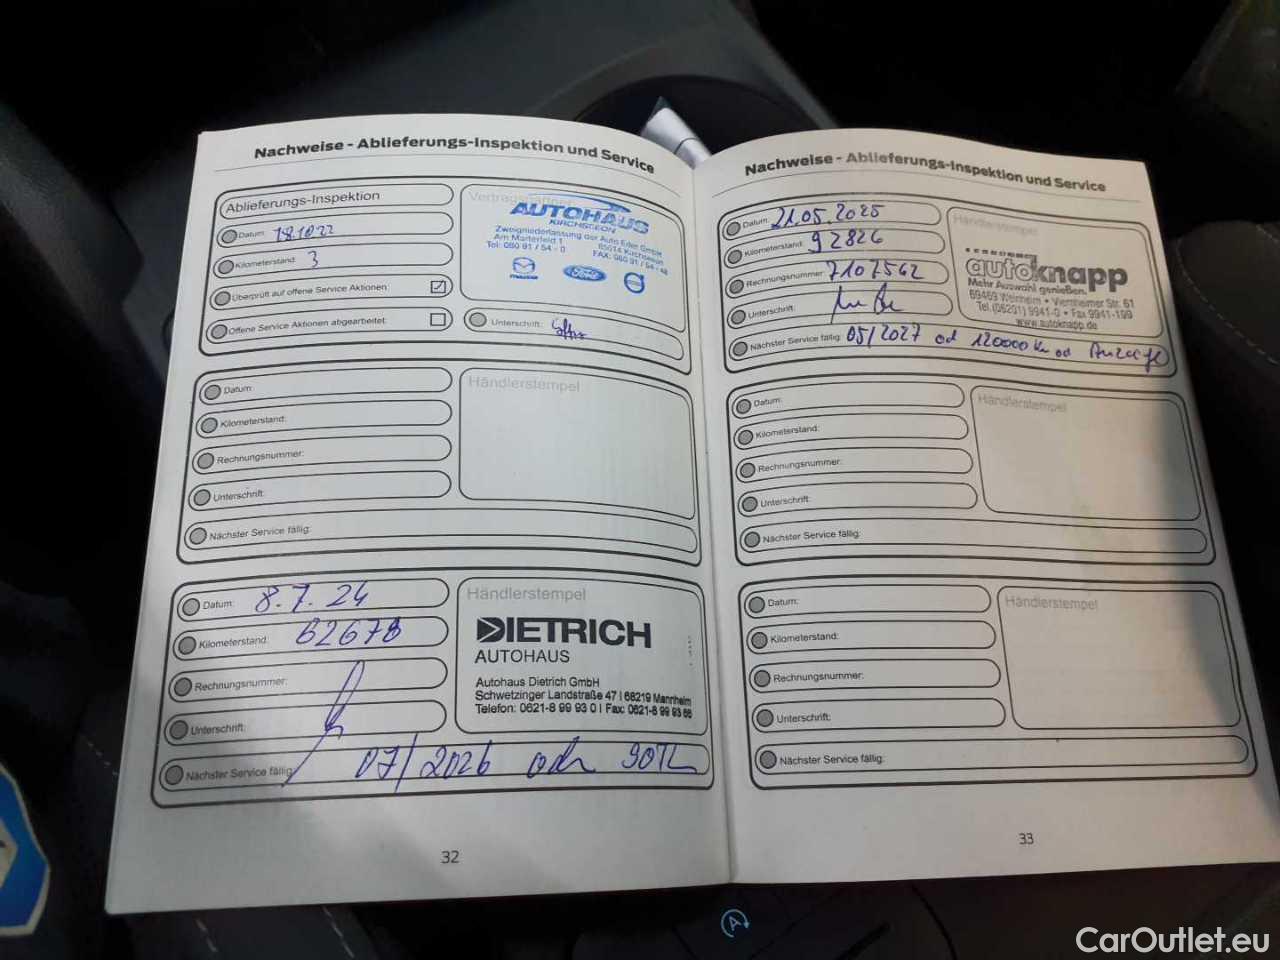 Nachweise - Ablieferungs-Inspektion und Service
Ablieferungs-Inspektion
Datum: 18.10.22
Kilometerstand: 3
Überprüft auf offene Service Aktionen:
Offene Service Aktionen abgearbeitet:
Vertragspartner
AUTOHAUS
KIRCHSEEON
Zweigniederlassung der Auto Eder GmbH
Am Marterfeld 1 85614 Kirchseeon
Tel: 080 91 / 54 - 0 FAX: 080 91 / 54 - 48
mazda Ford
Unterschrift:
Datum:
Kilometerstand:
Rechnungsnummer:
Unterschrift:
Nächster Service fällig:
Händlerstempel
Datum: 8.7.24
Kilometerstand: 62678
Rechnungsnummer:
Unterschrift:
Nächster Service fällig: 07/2026 oder 90TK
Händlerstempel
DIETRICH
AUTOHAUS
Autohaus Dietrich GmbH
Schwetzinger Landstraße 47 | 68219 Mannheim
Telefon: 0621-8 99 93 0 | Fax: 0621-8 99 93 66
32
Nachweise - Ablieferungs-Inspektion und Service
Datum: 21.05.2025
Kilometerstand: 92826
Rechnungsnummer: 7107562
Unterschrift:
Nächster Service fällig: 05/2027 od 120000 Km od Anzeige
Händlerstempel
autoknapp
Mehr Auswahl genießen.
69469 Weinheim • Viernheimer Str. 61
Tel. (06201) 9941-0 • Fax 9941-199
www.autoknapp.de
Datum:
Kilometerstand:
Rechnungsnummer:
Unterschrift:
Nächster Service fällig:
Händlerstempel
Datum:
Kilometerstand:
Rechnungsnummer:
Unterschrift:
Nächster Service fällig:
Händlerstempel
33
A
CarOutlet.eu